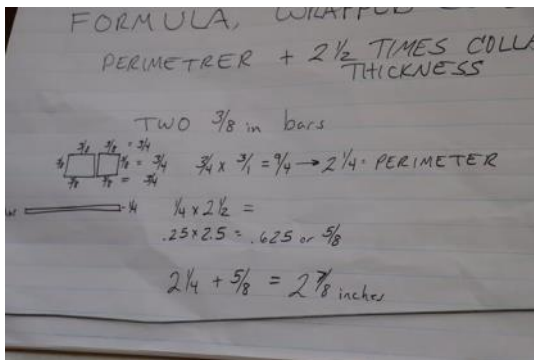 FORMULA, WRAPPED
PERIMETRER + 2 1/2 TIMES COLLA
THICKNESS
TWO 3/8 in bars
3/8 3/8 = 3/4
3/8 3/8 = 3/4 3/4 x 3/1 = 9/4 → 2 1/4 = PERIMETER
3/8 3/8 = 3/4
1/4 1/4 x 2 1/2 =
.25 x 2.5 = .625 or 5/8
2 1/4 + 5/8 = 2 7/8 inches